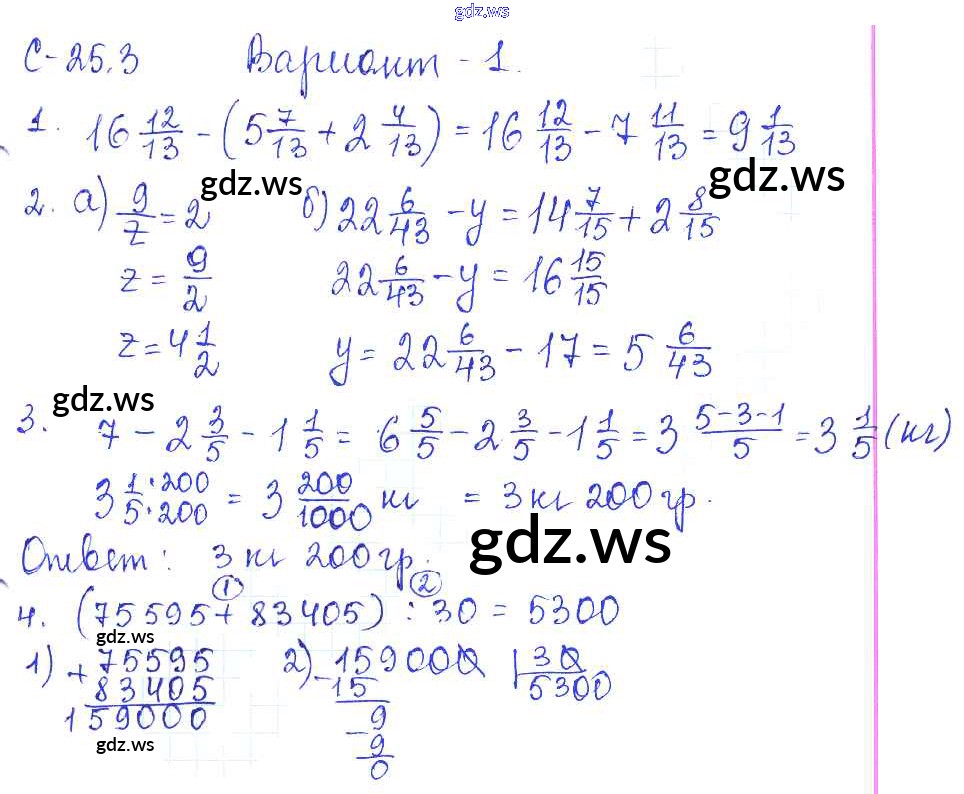 gdz.ws
С-25.3 Вариант - 1.
1. 16 12/13 - (5 7/13 + 2 4/13) = 16 12/13 - 7 11/13 = 9 1/13
gdz.ws gdz.ws
2. а) 9/z = 2 б) 22 6/43 - y = 14 7/15 + 2 8/15
z = 9/2 22 6/43 - y = 16 15/15
z = 4 1/2 y = 22 6/43 - 17 = 5 6/43
gdz.ws
3. 7 - 2 3/5 - 1 1/5 = 6 5/5 - 2 3/5 - 1 1/5 = 3 5-3-1/5 = 3 1/5 (кг)
3 1·200/5·200 = 3 200/1000 кг = 3 кг 200 гр.
gdz.ws
Ответ: 3 кг 200 гр.
1 2
4. (75595 + 83405) : 30 = 5300
gdz.ws
1) + 75595 2) - 159000 | 30
83405 15 5300
159000 9
- 9
gdz.ws gdz.ws
0